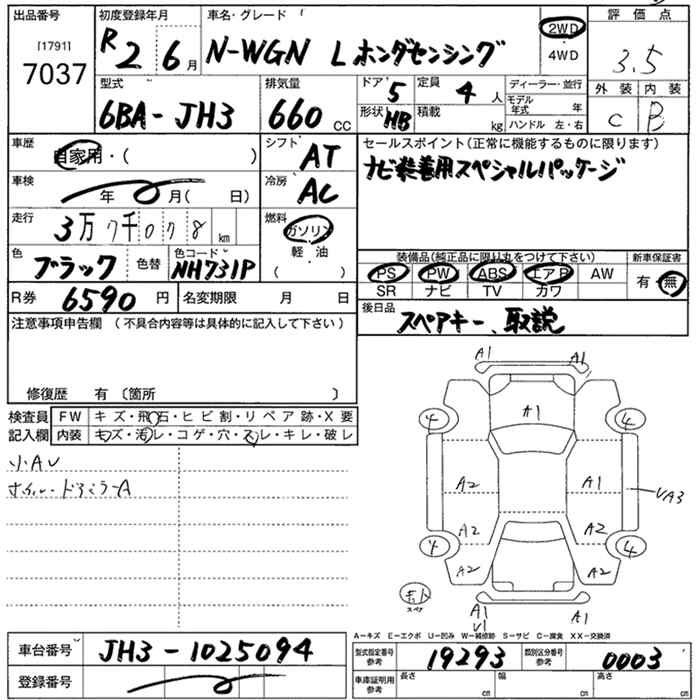 出品番号 [1791] 7037
初度登録年月 R2 6月
車名・グレード N-WGN L ホンダセンシング
2WD
・4WD
評価点 3.5
外装 C 内装 B
型式 6BA-JH3
排気量 660 CC
ドア 5 定員 4人
形状 HB 積載 kg
ディーラー・並行
モデル年式 年
ハンドル 左・右
車歴 自家用・( )
シフト AT
セールスポイント(正常に機能するものに限ります)
ナビ装着用スペシャルパッケージ
車検 年 月( 日)
冷房 AC
走行 3万7千078km
燃料 ガソリン
軽・油
( )
色 ブラック 色替
色コード NH731P
装備品(純正品に限り丸をつけて下さい) 新車保証書
PS PW ABS エアB AW 有・無
SR ナビ TV カワ
R券 6590円 名変期限 月 日
後日品 スペアキー、取説
注意事項申告欄 (不具合内容等は具体的に記入して下さい)
修復歴 有 〔箇所 〕
検査員 FW キズ・飛石・ヒビ割・リペア跡・X要
記入欄 内装 キズ・汚レ・コゲ・穴・スレ・キレ・破レ
小AU
ホイル・ドアミラーA
A1 A1
4 A1 4
A2 A1 UA3
A2 A2
4 4
A2 A2
スペア
A1 A1
U1
A-キズ E-エクボ U-凹み W-補修跡 S-サビ C-腐食 XX-交換済
車台番号 JH3-1025094
型式指定番号 参考 19293 類別区分番号 参考 0003
登録番号
車庫証明用 参考 長さ cm 幅 cm 高さ cm